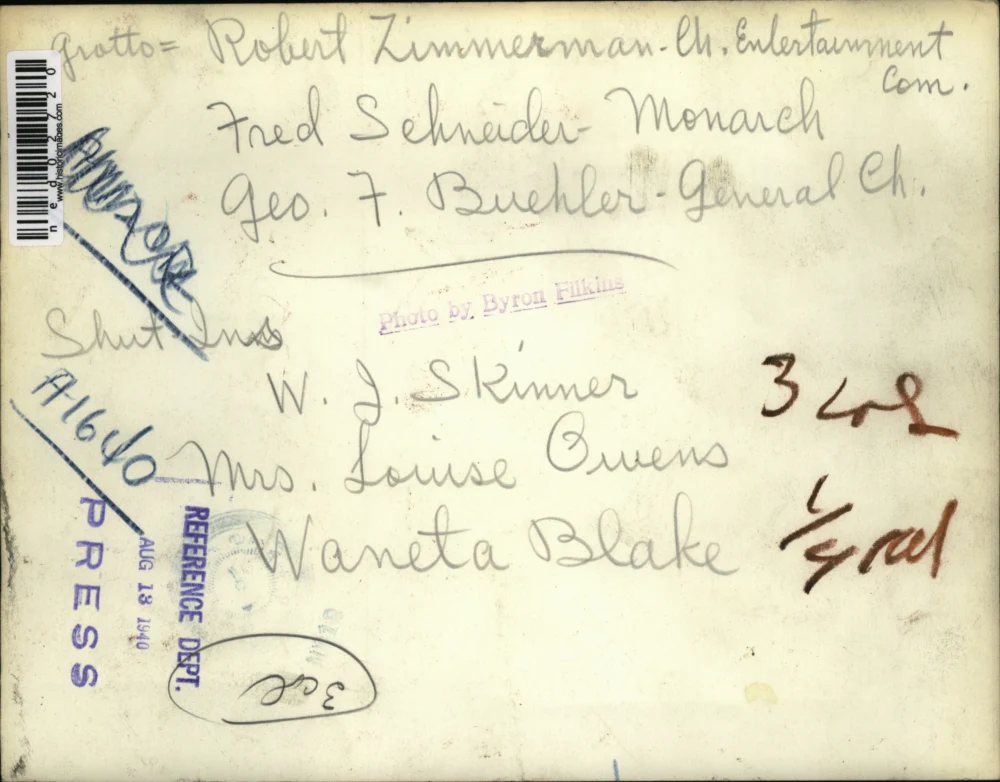 Grotto= Robert Zimmerman - Ch. Entertainment
Com.
Fred Schneider - Monarch
Geo. F. Buehler - General Ch.
Photo by Byron Filkins
Shut Ins
W. J. Skinner
Mrs. Louise Owens
Waneta Blake
3 col
A1640
PRESS
AUG 13 1940
REFERENCE DEPT.
3 col
www.historicimages.com